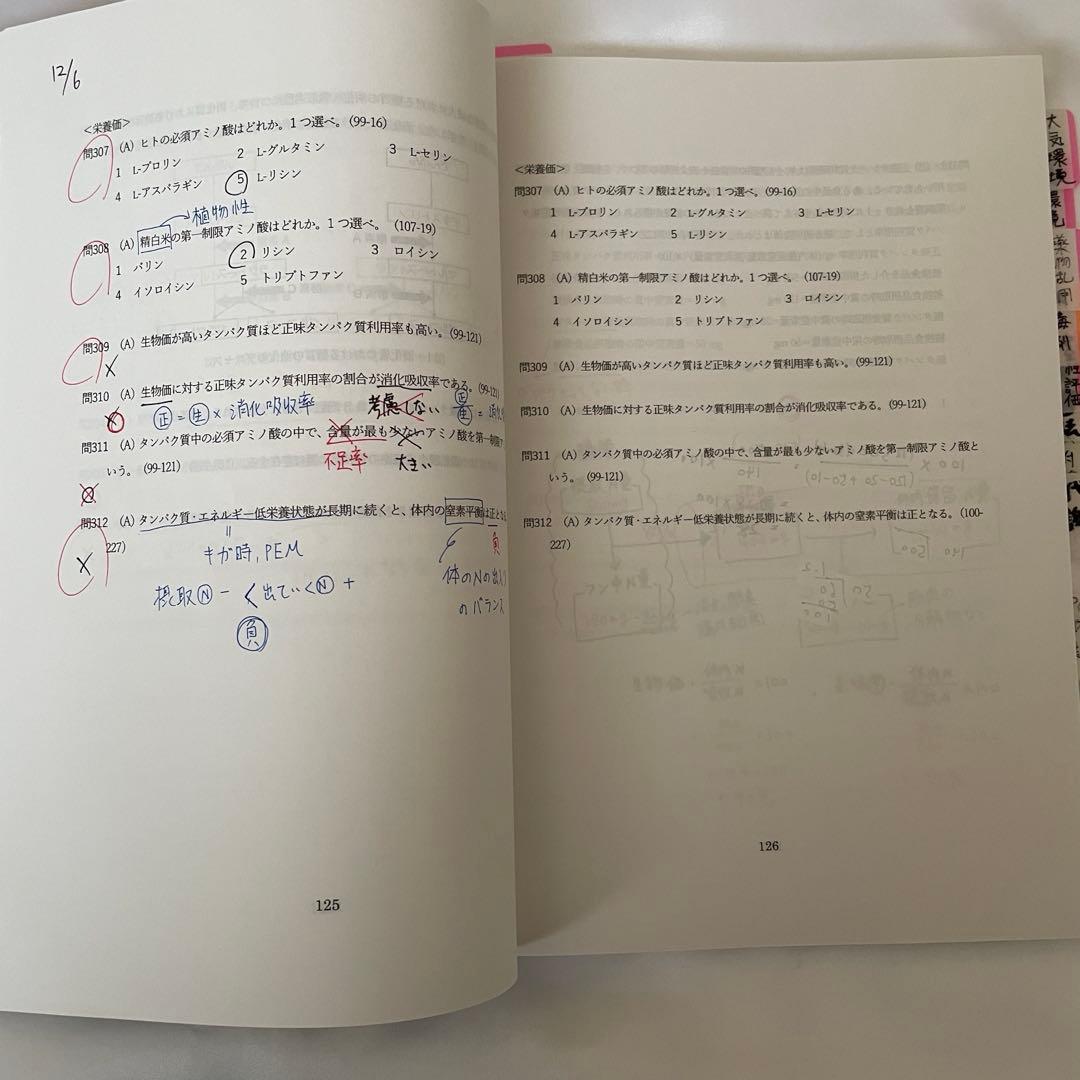 12/6
<栄養価>
問307 (A) ヒトの必須アミノ酸はどれか。1つ選べ。(99-16)
1 L-プロリン 2 L-グルタミン 3 L-セリン
4 L-アスパラギン 5 L-リシン
植物性
問308 (A) 精白米の第一制限アミノ酸はどれか。1つ選べ。 (107-19)
1 バリン 2 リシン 3 ロイシン
4 イソロイシン 5 トリプトファン
問309 (A) 生物価が高いタンパク質ほど正味タンパク質利用率も高い。(99-121)
×
問310 (A) 生物価に対する正味タンパク質利用率の割合が消化吸収率である。(99-121)
正=生× 消化吸収率 考慮しない 正/生=消化
問311 (A) タンパク質中の必須アミノ酸の中で、含量が最も少ないアミノ酸を第一制限ア
いう。 (99-121) 不足率 大きい
問312 (A) タンパク質・エネルギー低栄養状態が長期に続くと、体内の窒素平衡は正とな
227)
×
= 負
キガ時, PEM
体のNの出入り
のバランス
摂取N - < 出ていくN +
負
125
<栄養価>
問307 (A) ヒトの必須アミノ酸はどれか。1つ選べ。(99-16)
1 L-プロリン 2 L-グルタミン 3 L-セリン
4 L-アスパラギン 5 L-リシン
問308 (A) 精白米の第一制限アミノ酸はどれか。1つ選べ。(107-19)
1 バリン 2 リシン 3 ロイシン
4 イソロイシン 5 トリプトファン
問309 (A) 生物価が高いタンパク質ほど正味タンパク質利用率も高い。(99-121)
問310 (A) 生物価に対する正味タンパク質利用率の割合が消化吸収率である。(99-121)
問311 (A) タンパク質中の必須アミノ酸の中で、含量が最も少ないアミノ酸を第一制限アミノ酸と
いう。(99-121)
問312 (A) タンパク質・エネルギー低栄養状態が長期に続くと、体内の窒素平衡は正となる。(100-
227)
126
大気環境